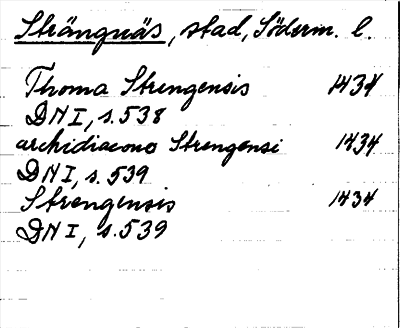 Strängnäs, stad, Söderm. l.
Thoma Strengensis 1434
DN I, s. 538
archidiacono Strengensi 1434
DN I, s. 539
Strengensis 1434
DN I, s. 539